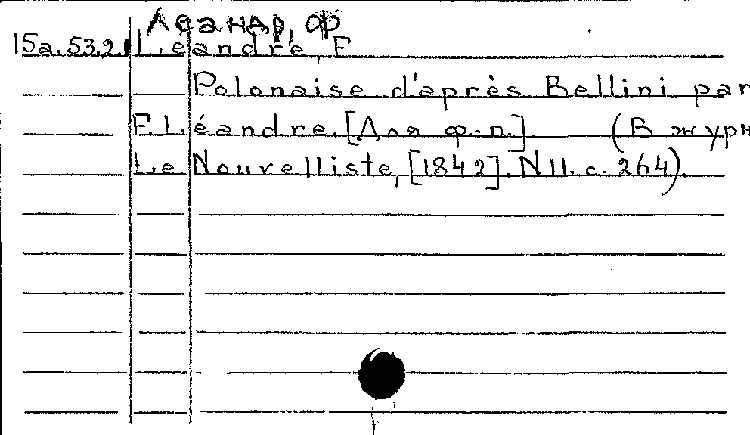 Леандр, Ф
15а.53.2. Léandre, F
Polonaise d'après Bellini par
F. Léandre. [Для ф-п.] (В журн
Le Nouvelliste, [1842]. N 11. с. 264).